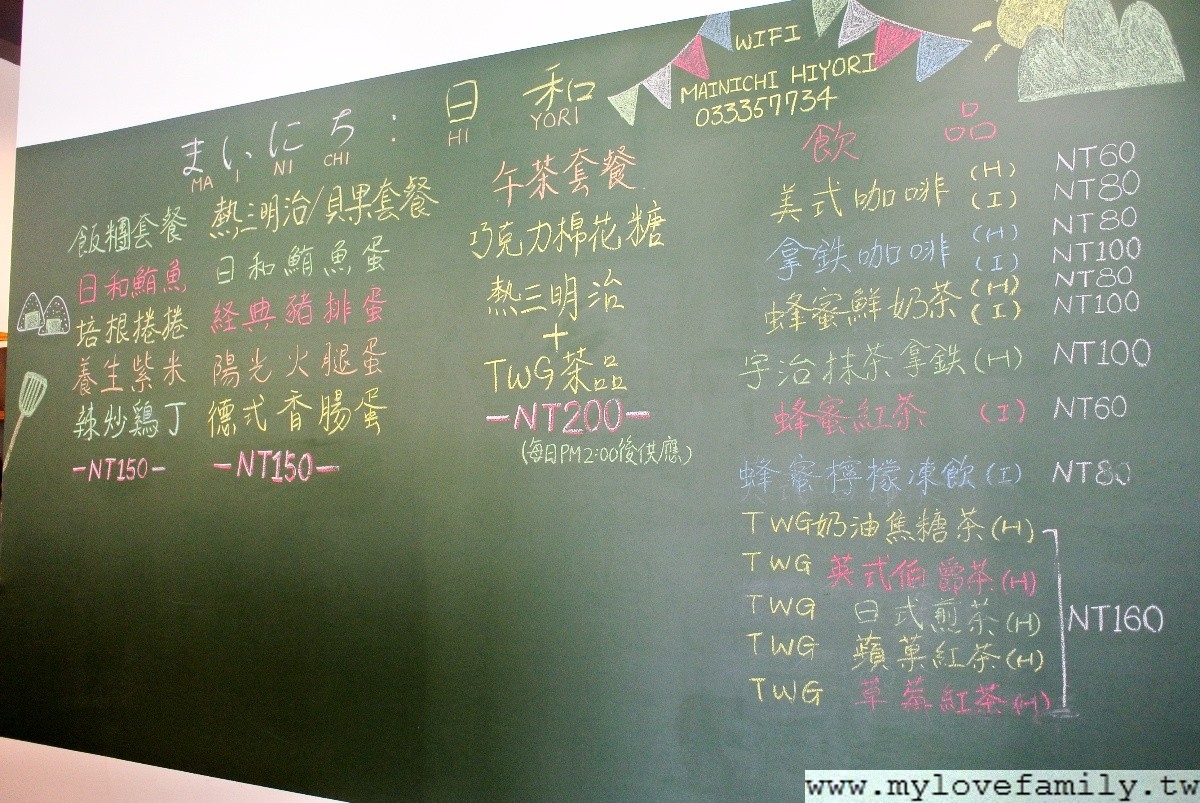 まいにち：日和
MA I NI CHI HI YORI
WIFI
MAINICHI HIYORI
033357734
飯糰套餐
日和鮪魚
培根捲捲
養生紫米
辣炒鷄丁
-NT150-
熱三明治/貝果套餐
日和鮪魚蛋
経典豬排蛋
陽光火腿蛋
德式香腸蛋
-NT150-
午茶套餐
巧克力棉花糖
熱三明治
+
TWG茶品
-NT200-
(每日PM2:00後供應)
飲品
美式咖啡 (H) NT60
(I) NT80
拿鉄咖啡 (H) NT80
(I) NT100
蜂蜜鮮奶茶 (H) NT80
(I) NT100
宇治抹茶拿鉄(H) NT100
蜂蜜紅茶 (I) NT60
蜂蜜檸檬凍飲(I) NT80
TWG奶油焦糖茶(H)
TWG 英式伯爵茶(H)
TWG 日式煎茶(H)
TWG 蘋菓紅茶(H)
TWG 草莓紅茶(H)
NT160
www.mylovefamily.tw